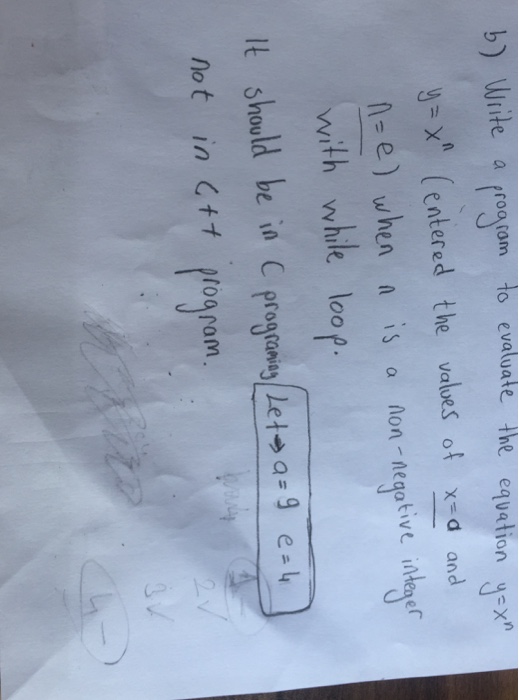 b) Write a program to evaluate the equation y=xⁿ
y=xⁿ (entered the values of x=a and
n=e) when n is a non-negative integer
with while loop.
It should be in C programing Let→ a=9 e=4
not in C++ program.
2✓
3✓
4-